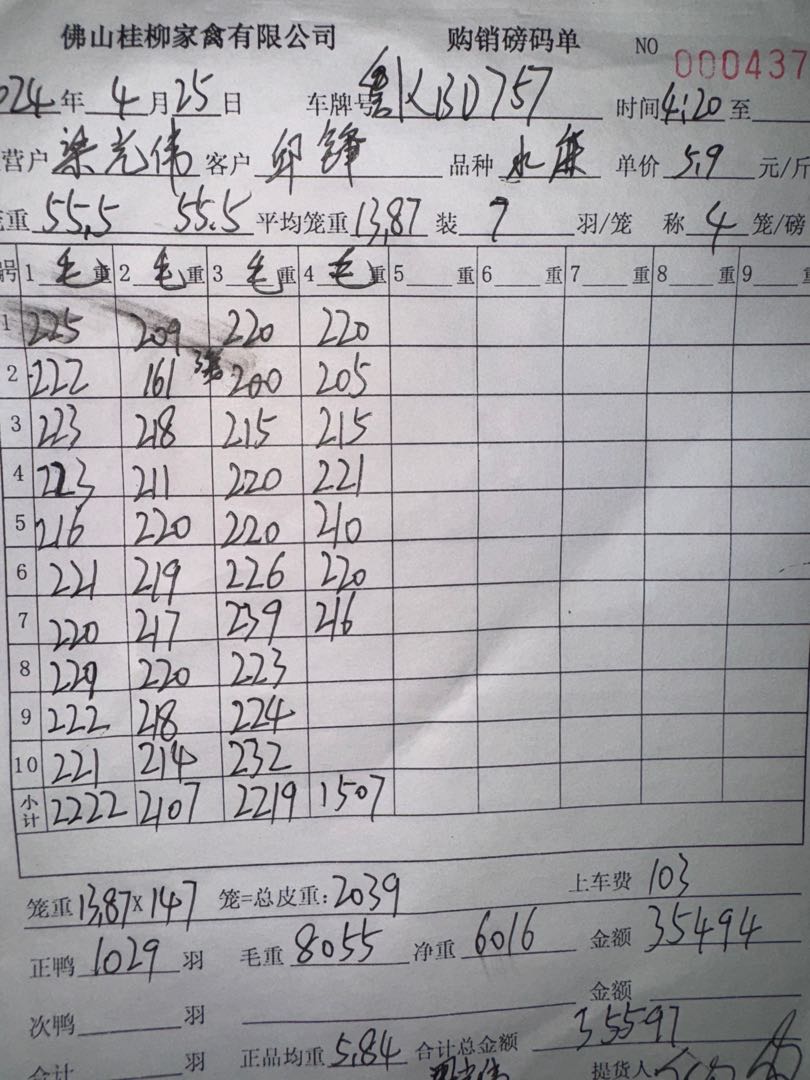 佛山桂柳家禽有限公司 购销磅码单 NO 000437
024年4月25日 车牌号 KBD757 时间4:20至
营户 梁光伟 客户 邱锋 品种 单价5.9元/斤
重55.5 55.5 平均笼重13.87 装7羽/笼 称4笼/磅
号 1毛重 2毛重 3毛重 4毛重 5重 6重 7重 8重 9重
1 225 209 220 220
2 222 161 200 205
3 223 218 215 215
4 223 211 220 221
5 216 220 220 210
6 221 219 226 220
7 220 217 239 216
8 229 220 223
9 222 218 224
10 221 214 232
小计 2222 2107 2219 1507
笼重13.87×147 笼=总皮重:2039 上车费103
正鸭1029羽 毛重8055 净重6016 金额35494
次鸭 羽 金额
合计 羽 正品均重5.84 合计总金额35597
提货人